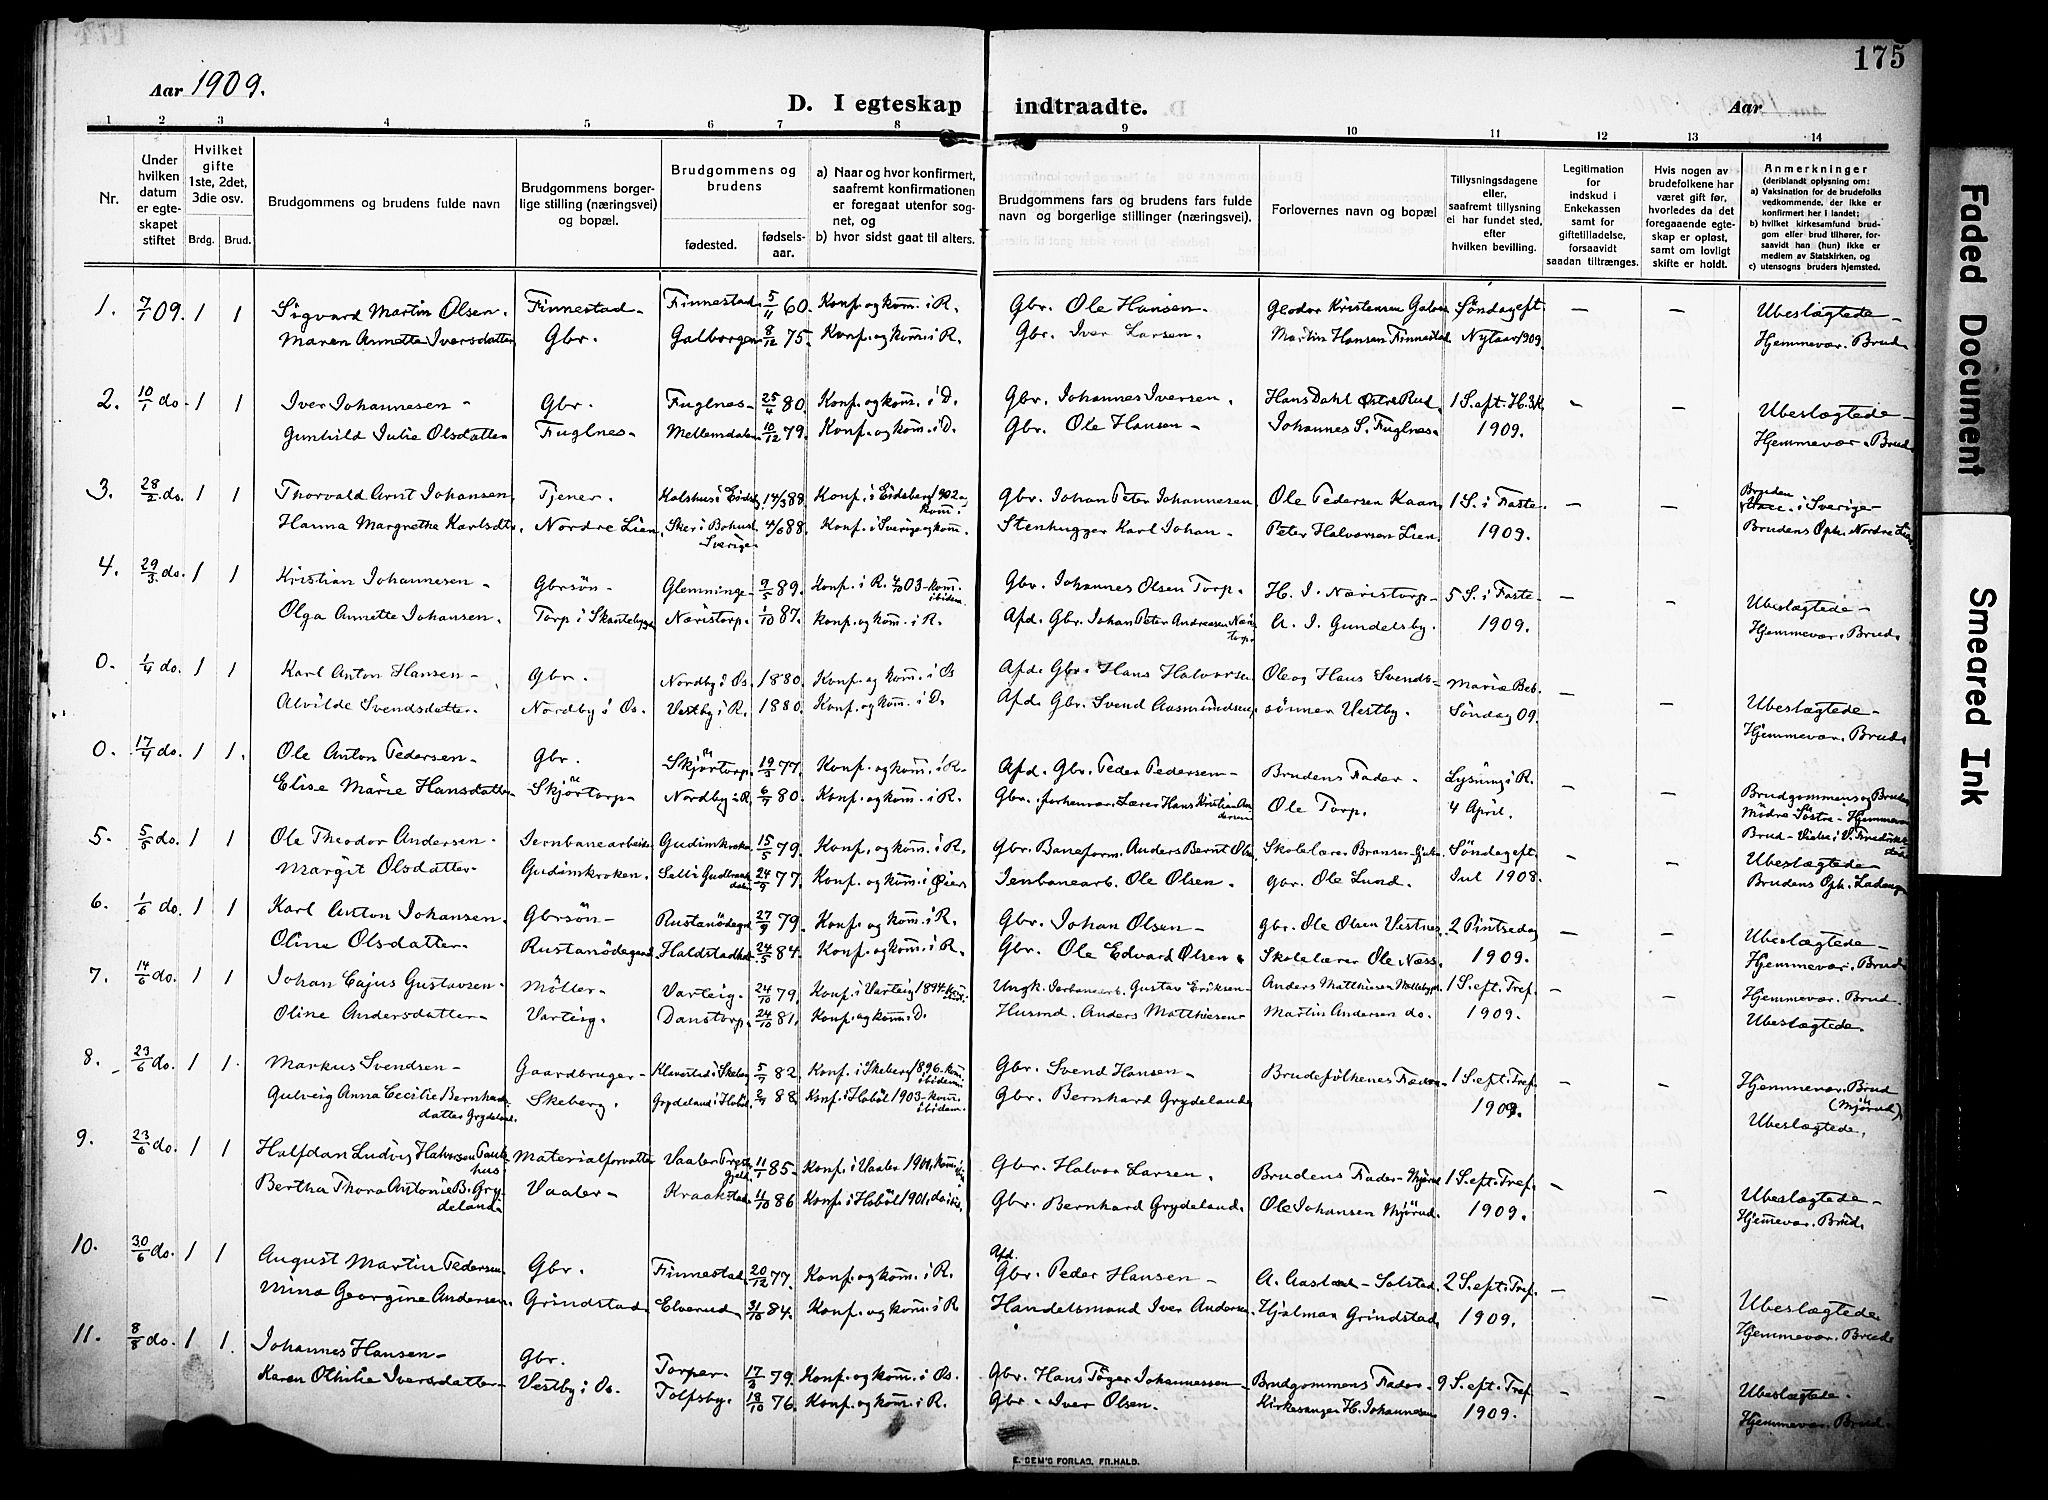 175
Aar 1909.
D. I egteskap indtraadte.
Aar
1 2 3 4 5 6 7 8 9 10 11 12 13 14
Nr.
Under hvilken datum er egteskapet stiftet
Hvilket gifte 1ste, 2det, 3die osv.
Brdg. Brud.
Brudgommens og brudens fulde navn
Brudgommens borgerlige stilling (næringsvei) og bopæl.
Brudgommens og brudens
fødested. fødselsaar.
a) Naar og hvor konfirmert, saafremt konfirmationen er foregaat utenfor sognet, og
b) hvor sidst gaat til alters.
Brudgommens fars og brudens fars fulde navn og borgerlige stillinger (næringsvei).
Forlovernes navn og bopæl
Tillysningsdagene eller, saafremt tillysning ei har fundet sted, efter hvilken bevilling.
Legitimation for indskud i Enkekassen samt for giftetilladelse, forsaavidt saadan tiltrænges.
Hvis nogen av brudefolkene har været gift før, hvorledes da det foregaaende egteskap er opløst, samt om lovligt skifte er holdt.
Anmerkninger
(deriblandt oplysning om:
a) Vaksination for de brudefolks vedkommende, der ikke er konfirmert her i landet;
b) hvilket kirkesamfund brudgom eller brud tilhører, forsaavidt han (hun) ikke er medlem av Statskirken, og
c) utensogns bruders hjemsted.
1. 7/1 09. 1 1 Sigvard Martin Olsen. Finnestad- Finnestad. 5/11 60. Konf. og kom. i R. Gbr. Ole Hansen- Søndag eft. — — Ubeslægtede-
Maren Annette Iversdatter Gbr. Galborgen 8/12 75. Konf. og kom. i R. Gbr. Iver Larsen. Martin Hansen Finnestad Nytaar 1909. Hjemmevær. Brud.
2. 10/1 do. 1 1 Iver Johannesen- Gbr. Fuglnes- 25/4 80. Konf. og kom. i D. Gbr. Johannes Iversen. Hans Dahl Østre Rud. 1 S. eft. H.3.K. — — Ubeslægtede-
Gunhild Julie Olsdatter Fuglnes- Mellemdalen 10/12 79. Konf. og kom. i D. Gbr. Ole Hansen- Johannes S. Fuglnes. 1909. Hjemmevær. Brud.
3. 28/2 do. 1 1 Thorvald Arnt Johansen Tjener. 14/3 88. Konf. i Eidsberg 1902 og kom. i Gbr. Johan Peter Johannesen Ole Pedersen Kaan. 1 S. i Faste- — — Bruden i Sverige
Hanna Margretha Karlsdtr. Nordre Lien. Sker i Bohus Sverige 4/6 88. Konf. i Sverige og kom. Stenhugger Karl Johan- Peter Halvorsen Lien. 1909. Brudens Oph. Nordre Lien
4. 29/3 do. 1 1 Kristian Johannesen- Gbrsön- Glemminge- 9/5 89. Konf. i R. 4/10 03- kom. ibidem. Gbr. Johannes Olsen Torp. H. I. Næristorp- 5 S. i Faste- — — Ubeslægtede-
Olga Annette Johansen. Torp i Skantebygd Næristorp. 1/10 87. Konf. og kom. i R. Afd. Gbr. Johan Peter Andreasen Næristorp. A. I. Gundelsby. 1909. Hjemmevær. Brud.
0. 1/4 do. 1 1 Karl Anton Hansen- Gbr. Nordby i Øs. 1880. Konf. og kom. i Øs Afd. Gbr. Hans Halvorsen Ole og Hans Svends- Mariæ Beb. — — Ubeslægtede-
Alvilde Svendsdatter. Nordby i Øs. Vestby i R. 1880. Konf. og kom. i D. Afd. Gbr. Svend Aasmundsen sönner Vestby. Søndag 09. Hjemmevær. Brud.
0. 17/4 do. 1 1. Ole Anton Pedersen- Gbr. Skjörtorp. 19/3 77. Konf. og kom. i R. Afd. Gbr. Peder Pedersen- Brudens Fader- Lysning i R. — — Brudgommens og Brudens
Elise Marie Hansdatter Skjörtorp- Nordby i R. 6/7 80. Konf. og kom. i R. Gbr. forhenvær. Lærer Hans Kristian Andersen Ole Torp. 4 April. Mödre Söstre- Hjemmevær.
5. 5/5 do. 1 1 Ole Theodor Andersen- Jernbanearbeider Gudimkroken 15/5 79. Konf. og kom. i R. Gbr. Baneform. Anders Bernt Olsen Søndag eft. — — Ubeslægtede-
Margit Olsdatter- Gudimkroken. Sell i Gudbrandsdalen 24/9 77. Konf. og kom. i Øier Jernbanearb. Ole Olsen. Gbr. Ole Lund. Jul 1908. Brudens Oph.
6. 1/6 do. 1 1 Karl Anton Johansen. Gbrsön- Rustanödegrd. 27/9 79. Konf. og kom. i R. Gbr. Johan Olsen- Gbr. Ole Olsen Vestnes. 2 Pintsedag — — Ubeslægtede-
Oline Olsdatter. Rustanödegaard. 24/5 84. Konf. og kom. i R. Gbr. Ole Edvard Olsen. Skolelærer Ole Næss. 1909. Hjemmevær. Brud.
7. 14/6 do. 1 1 Johan Cajus Gustavsen- Möller- Varteig- 24/10 79. Konf. i Varteig 1894. Ungk. Jernbanearb. Gustav Eriksen- Anders Matthisen 1 S. eft. Tref. — — Hjemmevær. Brud.
Oline Andersdatter- Varteig. Danstorp. 24/10 81. Konf. og kom. D. Husmd. Anders Matthiesen- Martin Andersen do. 1909. Ubeslægtede.
8. 23/6 do. 1 1. Markus Svendsen- Gaardbruger- Klavestad i Skeberg 5/7 82. Konf. i Skeberg 1896- kom. ibidem. Gbr. Svend Hansen- Brudefolkenes Fædre 1 S. eft. Tref. — — Hjemmevær. Brud (Mjörud).
Gulveig Anna Cecilie Bernhardsdatter Grydeland. Skeberg. Grydeland i Hoböl 88. Konf. i Hoböl 1903- kom. ibidem. Gbr. Bernhard Grydeland 1909. Ubeslægtede.
9. 23/6 do. 1 1 Halfdan Ludvig Halvorsen Materialforvalter Vaaler Prestegjeld. 11/1 85. Konf. i Vaaler 1901, Gbr. Halvor Larsen. Brudens Fader- Mjörud 1 S. eft. Tref. — — Ubeslægtede-
Bertha Thora Antonie B. Grydeland. Vaaler- Kraakstad. 11/10 86 Konf. i Hoböl 1901, Gbr. Bernhard Grydeland. Ole Johansen Mjörud. 1909. Hjemmevær. Brud.
10. 30/6 do. 1 1 August Martin Pedersen. Gbr. Finnestad. 20/12 77. Konf. og kom. i R. Afd. Gbr. Peder Hansen- 2 S. eft. Tref. — — Ubeslægtede.
Mina Georgine Andersen. Grindstad. Elverud. 31/10 84. Konf. og kom. i R Handelsmand Iver Andersen. Hjalmar Grindstad 1909. Hjemmevær. Brud.
11. 8/8 do. 1 1. Johannes Hansen- Gbr. Torper- 17/3 79. Konf. og kom. i Øs. Gbr. Hans Töger Johannessen Brudgommens Fader- 9 S. eft. Tref. — — Ubeslægtede-
Karen Othilie Iversdatter- Vestby i Øs. Tolfsby. 18/10 76. Konf. og kom. i R. Gbr. Iver Olsen. Kirkesanger H. Johannesen 1909. Hjemmevær. Brud.
E. SEM'S FORLAG, FR.HALD.
Faded Document
Smeared Ink